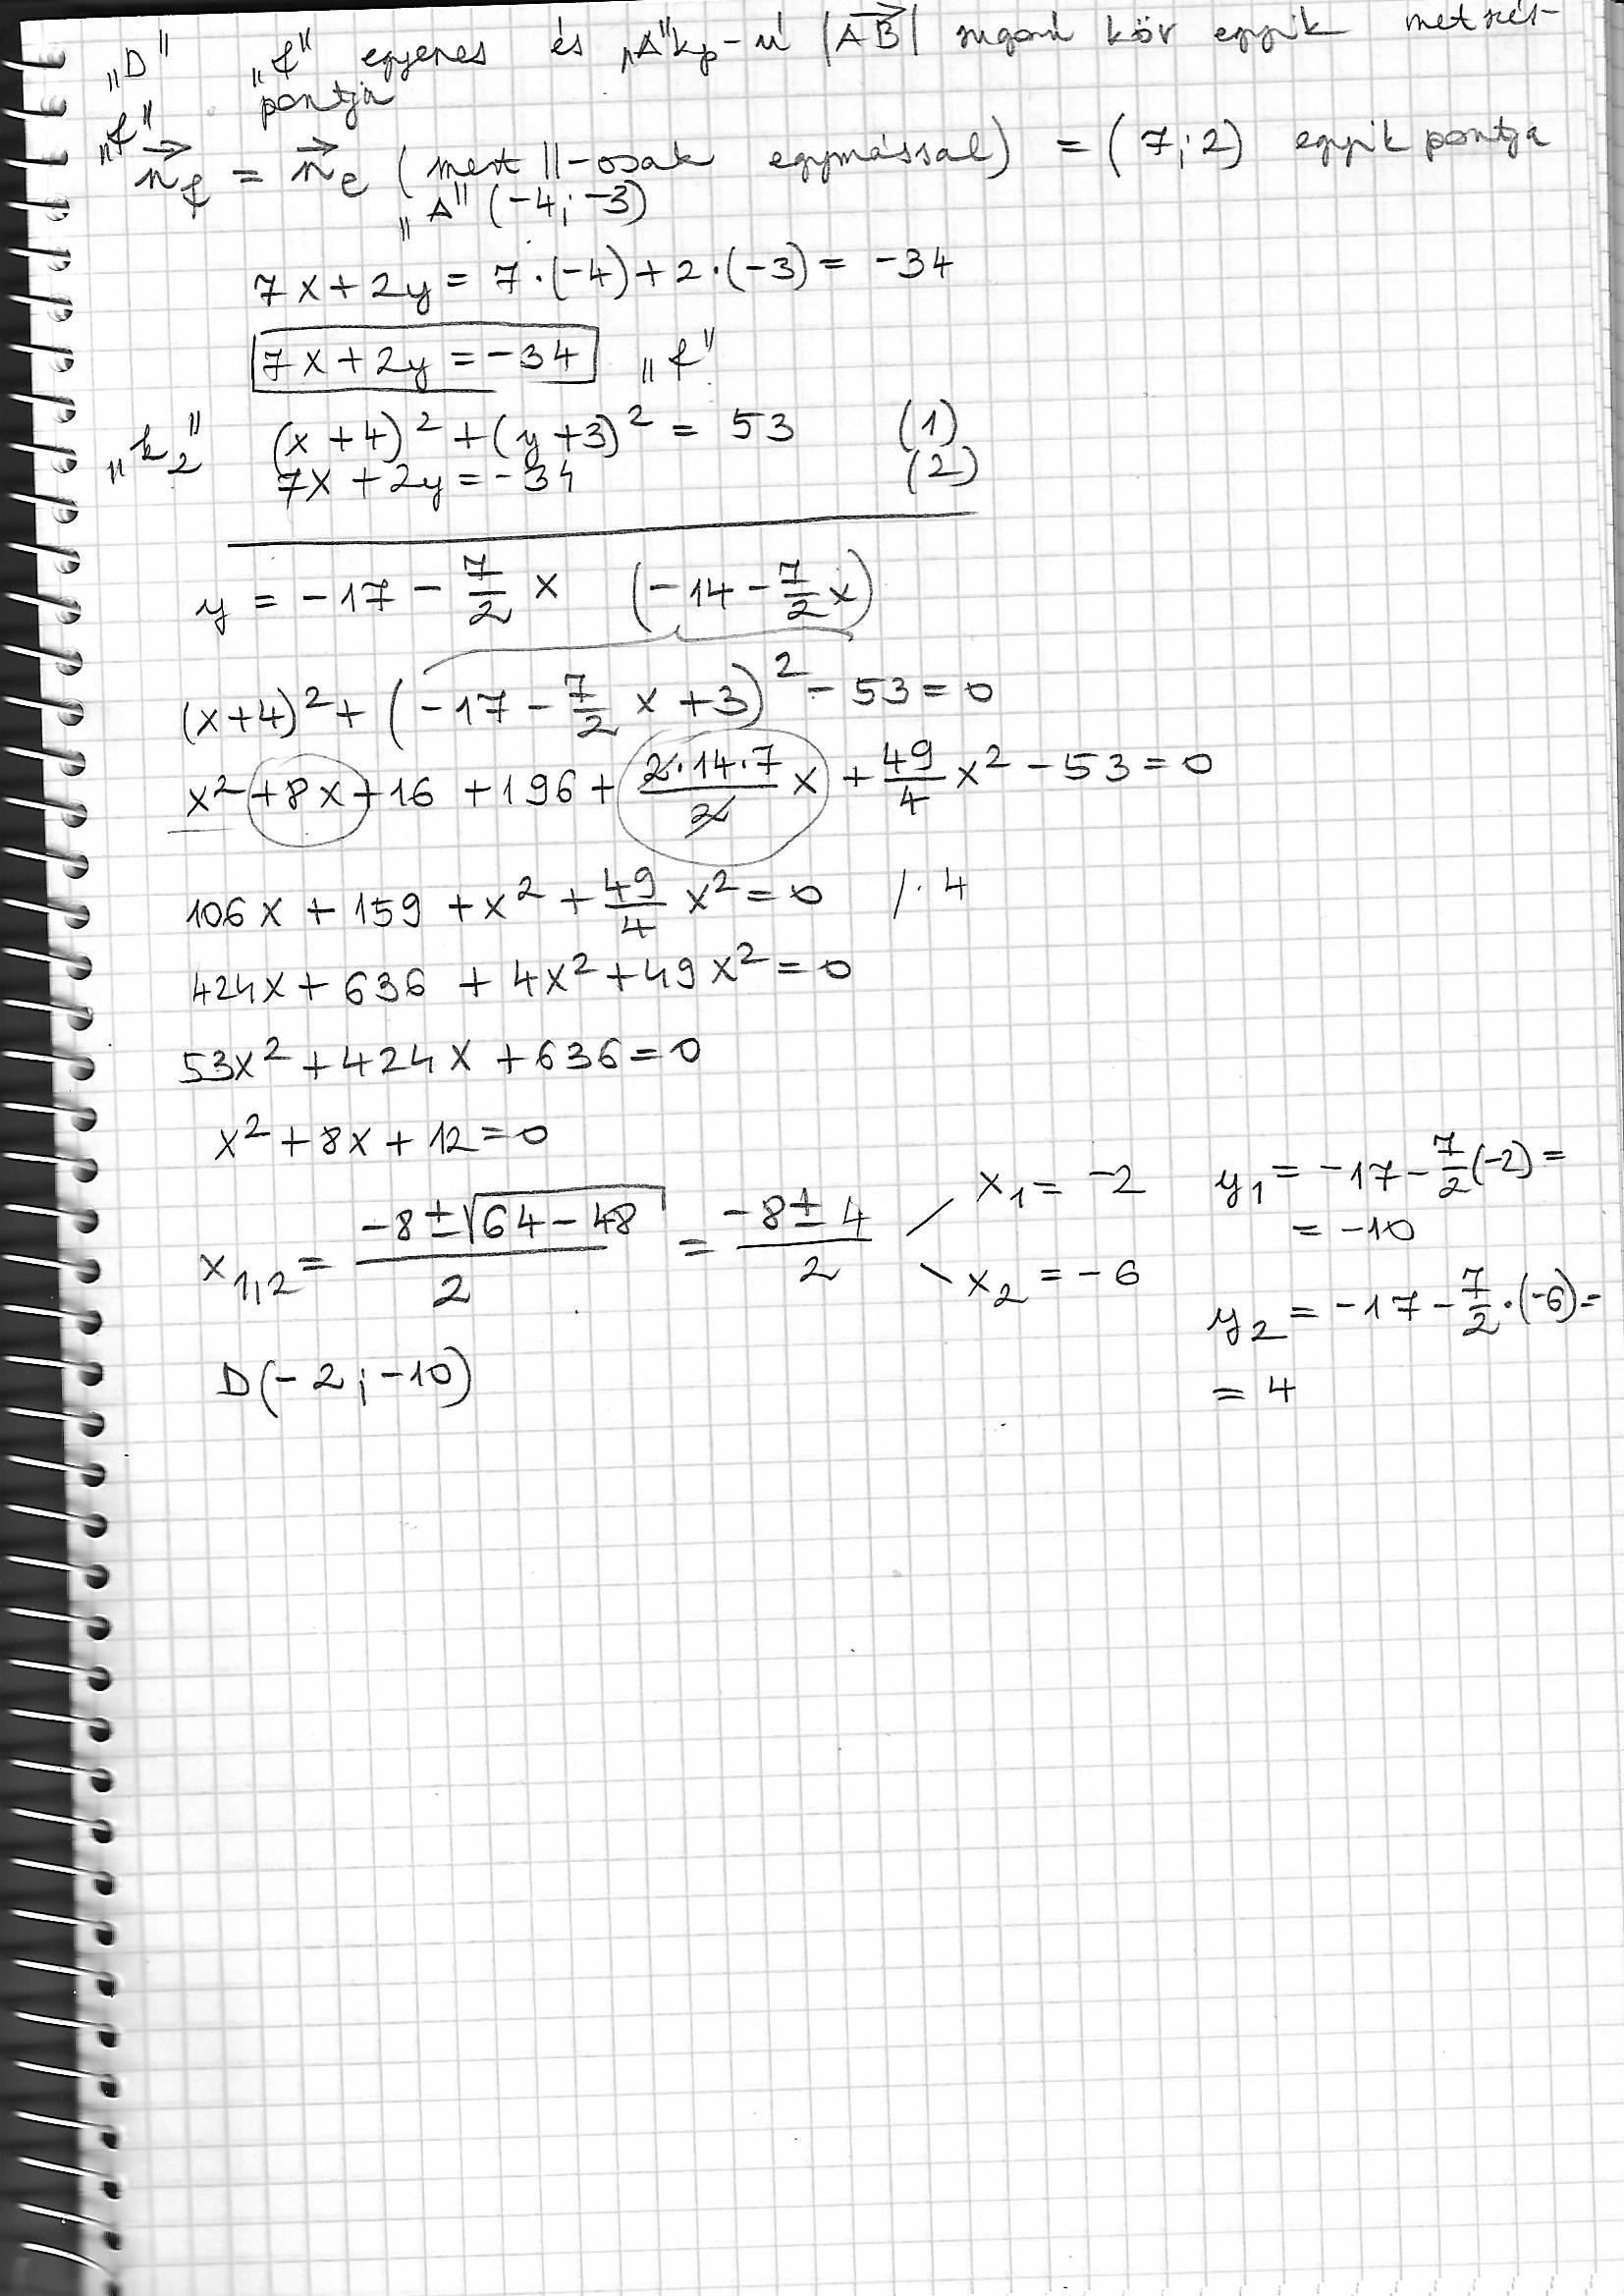 „D" „f" egyenes és „A" kp-ú |AB| sugarú kör egyik metszés-
pontja
„f"
n_f = n_e (mert ||-osak egymással) = (7;2) egyik pontja
„A" (-4;-3)
7x+2y = 7·(-4)+2·(-3) = -34
7x+2y = -34 „f"
„k₂" (x+4)² + (y+3)² = 53 (1)
7x+2y = -34 (2)
y = -17 - 7/2 x (-14 - 7/2 x)
(x+4)² + (-17 - 7/2 x + 3)² - 53 = 0
x² + 8x + 16 + 196 + 2·14·7/2 x + 49/4 x² - 53 = 0
106x + 159 + x² + 49/4 x² = 0 /·4
424x + 636 + 4x² + 49x² = 0
53x² + 424x + 636 = 0
x² + 8x + 12 = 0
x₁,₂ = (-8 ± √64-48)/2 = (-8 ± 4)/2
x₁ = -2 y₁ = -17 - 7/2 (-2) =
= -10
x₂ = -6 y₂ = -17 - 7/2 · (-6) =
= 4
D(-2;-10)